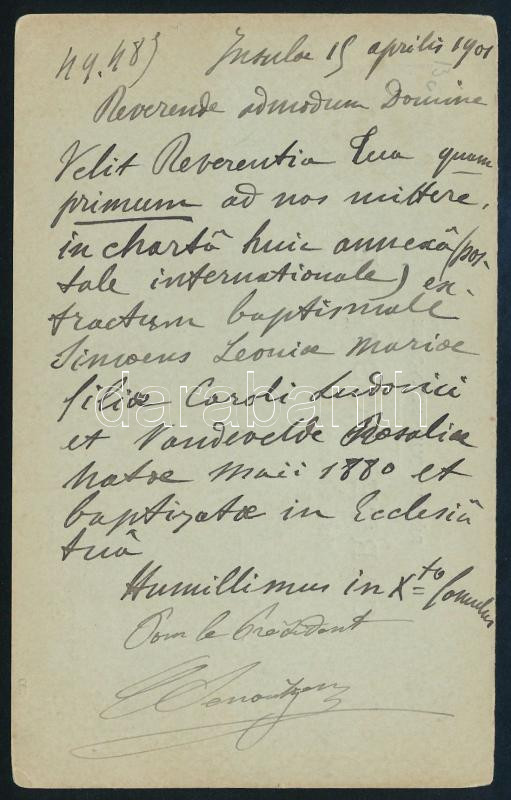 49.483 Insulae 15 aprilis 1901
Reverende admodum Domine
Velit Reverentia Tua quam
primum ad nos mittere,
in chartâ huic annexâ (pos-
tale internationale) ex-
tractum baptismale
Simoens Leoniae Mariae
filiae Caroli Ludovici
et Vandevelde Rosaliae
natae Maii 1880 et
baptizatae in Ecclesiâ
tuâ
Humillimus in Xto famulus
Pour le Président
darabanth